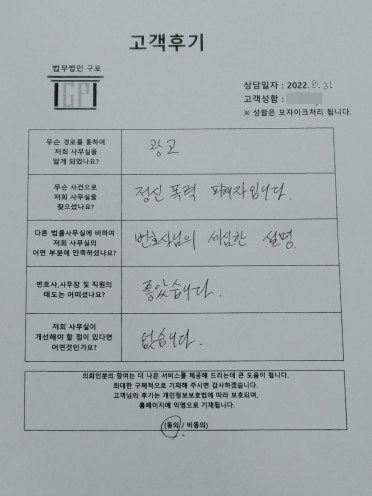 고객후기
법무법인 구포
GP
상담일자 : 2022. 8. 31
고객성함 :
※ 성함은 모자이크처리 됩니다.
무슨 경로를 통하여
저희 사무실을
알게 되었나요?
광고
무슨 사건으로
저희 사무실을
찾으셨나요?
정신 폭력 피해자입니다.
다른 법률사무실에 비하여
저희 사무실의
어떤 부분에 만족하셨나요?
변호사님의 세심한 설명
변호사,사무장 및 직원의
태도는 어떠셨나요?
좋았습니다.
저희 사무실이
개선해야 할 점이 있다면
어떤것인가요?
없습니다.
의뢰인분의 참여는 더 나은 서비스를 제공해 드리는데 큰 도움이 됩니다.
최대한 구체적으로 기재해 주시면 감사하겠습니다.
고객님의 후기는 개인정보보호법에 따라 보호되며,
홈페이지에 익명으로 기재됩니다.
(동의 / 비동의)